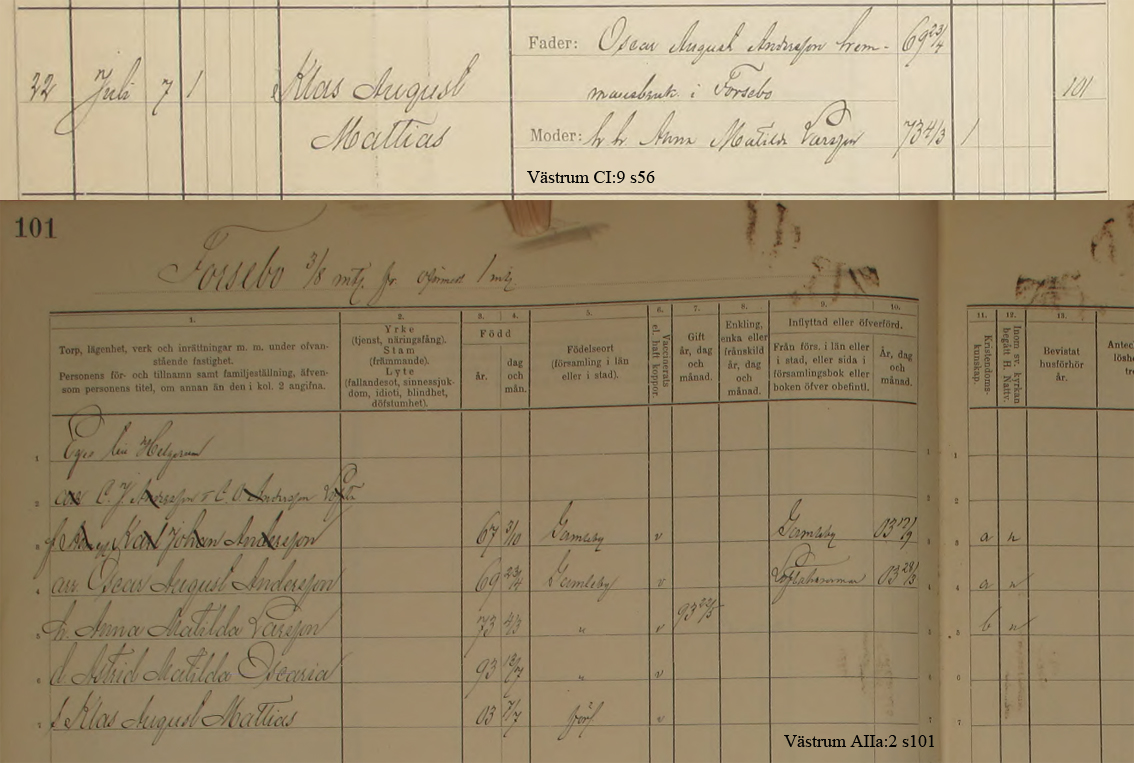 Fader: Oscar August Andersson hem- 69 23/4
22 Juli 7 1 Klas August mansbruk. i Forsebo 101
Mattias Moder: h h Anna Matilda Larsson 73 4/3 1
Västrum CI:9 s56
101
Forsebo 3/8 mtl. fr. 1 mtl
1. 2. 3. 4. 5. 6. 7. 8. 9. 10. 11. 12. 13.
Torp, lägenhet, verk och inrättningar m. m. under ofvan-
stående fastighet.
Personens för- och tillnamn samt familjeställning, äfven-
som personens titel, om annan än den i kol. 2 angifna.
Yrke
(tjenst, näringsfång).
Stam
(främmande).
Lyte
(fallandesot, sinnessjuk-
dom, idioti, blindhet,
döfstumhet).
Född
år.
dag
och
mån.
Födelseort
(församling i län
eller i stad).
Vaccinerats
el. haft koppor.
Gift
år, dag
och
månad.
Enkling,
enka eller
frånskild
år, dag
och
månad.
Inflyttad eller öfverförd.
Från förs. i län eller
i stad, eller sida i
församlingsbok eller
boken öfver obefintl.
År, dag
och
månad.
Kristendoms-
kunskap.
Inom sv. kyrkan
begått H. Nattv.
Bevistat
husförhör
år.
Antec
lösh
tr
1 Helgerum 1
2 C. J. Andersson C O Andersson 2
3 Karl Johan Andersson 67 5/10 Gamleby v Gamleby 03 3 a n
4 Oscar August Andersson 69 23/4 Gamleby v 03 4 a n
5 h Anna Matilda Larsson 73 4/3 " v 93 5 b n
6 d Astrid Matilda Oscaria 93 " v 6
7 Klas August Mattias 03 7/7 v 7
Västrum AIIa:2 s101